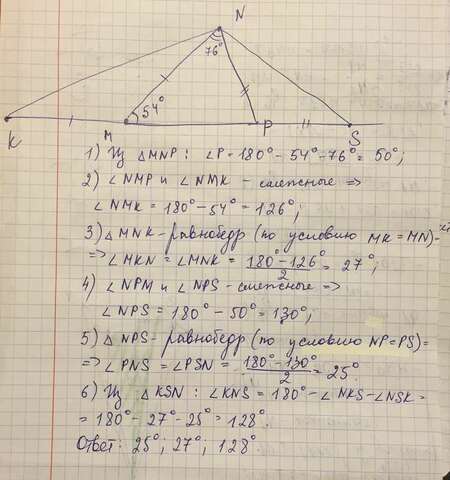 N
76°
54°
K
M
P
S
1) Из △MNP: ∠P=180°-54°-76°= 50°;
2) ∠NMP и ∠NMK - смежные =>
∠NMK = 180°-54° = 126°;
3) △MNK - равнобедр (по условию MK=MN)-
=> ∠MKN = ∠MNK = (180°-126°)/2 = 27°;
4) ∠NPM и ∠NPS - смежные =>
∠NPS = 180° - 50° = 130°;
5) △NPS - равнобедр (по условию NP=PS)=
=> ∠PNS = ∠PSN = (180°-130°)/2 = 25°
6) Из △KSN: ∠KNS = 180° - ∠NKS - ∠NSK =
= 180° - 27° - 25° = 128°.
Ответ: 25°; 27°; 128°.